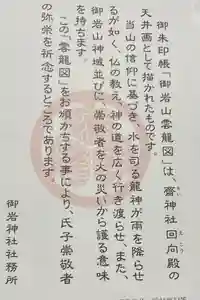 御朱印帳「御岩山雲龍図」は、齋神社回向殿の
天井画として描かれたものです。
当山の信仰に基づき、水を司る龍神が雨を降らせ
るが如く、仏の教え、神の道を広く行き渡らせ、また、
御岩山神域並びに、崇敬者を火の災いから護る意味
を持ちます。
この「雲龍図」をお頒かちする事により、氏子崇敬者
の弥栄を祈念するところであります。
御岩神社社務所